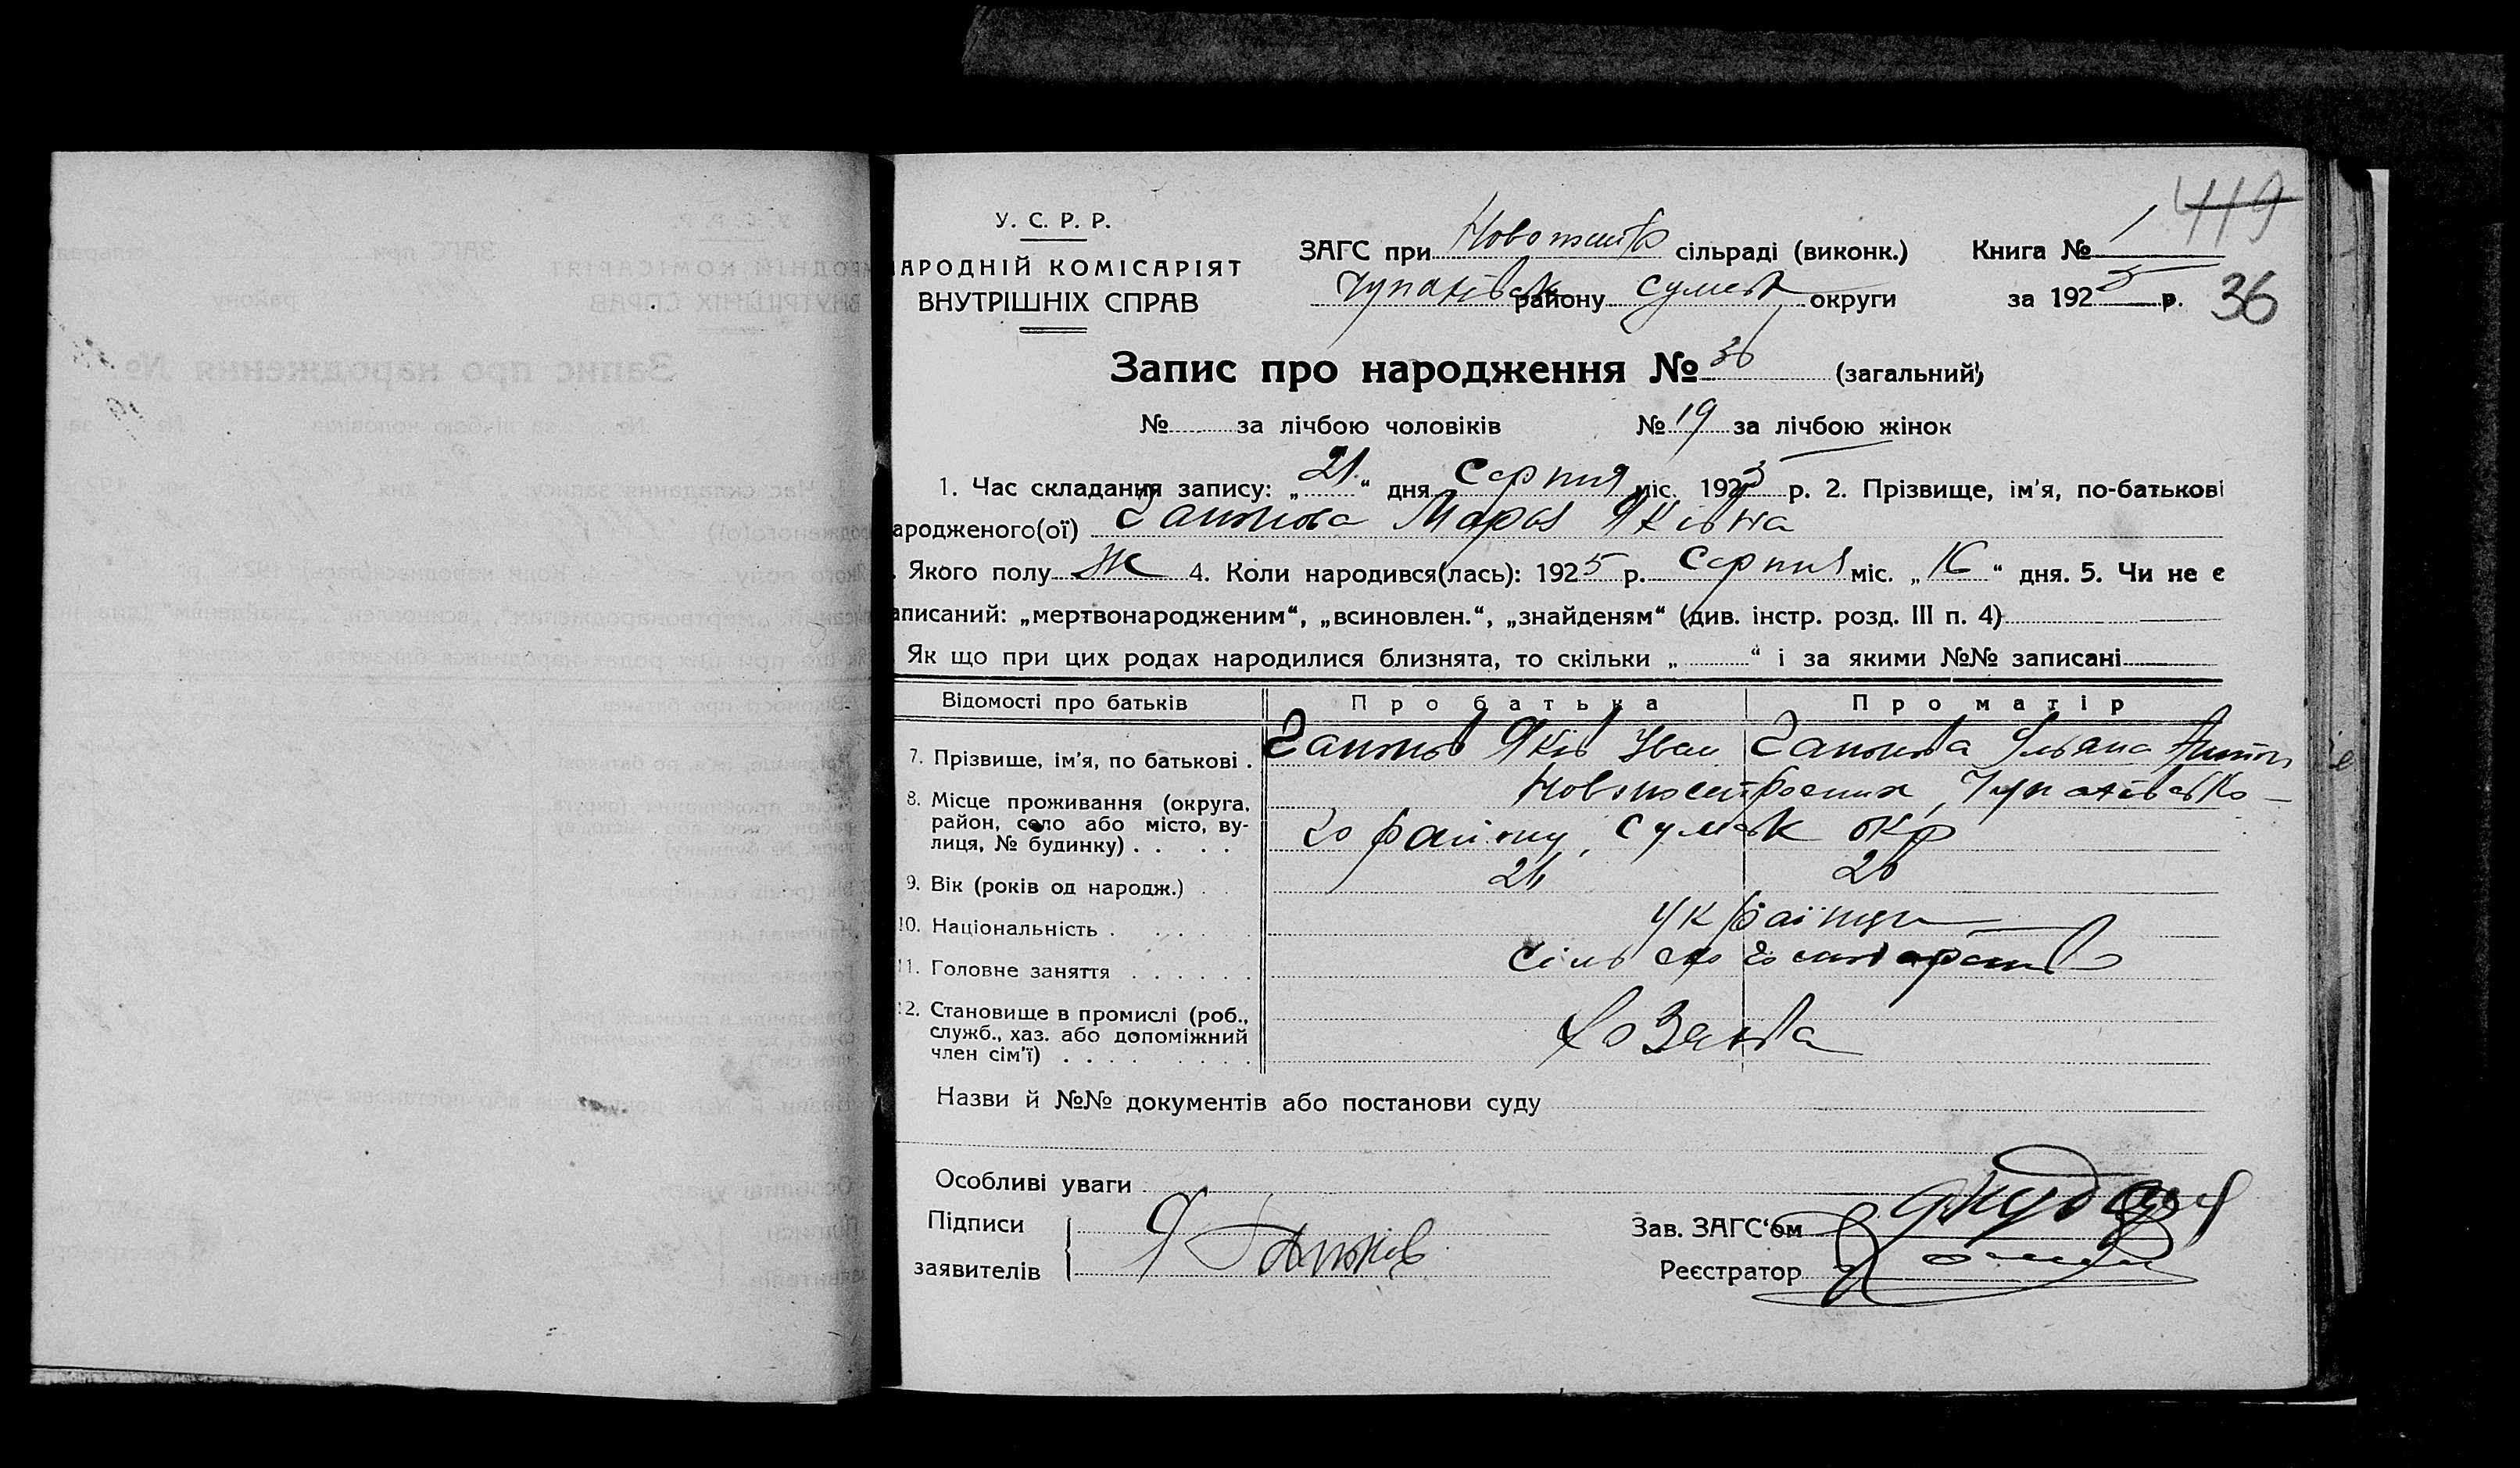 419
У. С. Р. Р.
АРОДНІЙ КОМІСАРІЯТ
ВНУТРІШНІХ СПРАВ
ЗАГС при сільраді (виконк.)
району Сумськ округи
Книга № 1
за 1925 р. 36
Запис про народження № 36 (загальний)
№ за лічбою чоловіків № 19 за лічбою жінок
1. Час складання запису: „21“ дня Серпня міс. 1925 р. 2. Прізвище, ім'я, по-батькові
ародженого(ої) Гапонова Марія Яківна
. Якого полу Ж 4. Коли народився(лась): 1925 р. Серпня міс. „16“ дня. 5. Чи не є
аписаний: „мертвонародженим“, „всиновлен.“, „знайденям“ (див. інстр. розд. III п. 4)
Як що при цих родах народилися близнята, то скільки „ “ і за якими №№ записані
Відомості про батьків Про батька Про матір
7. Прізвище, ім'я, по батькові . Гапонов Яків Іван Гапонова Уляна Антон
8. Місце проживання (округа, район, село або місто, вулиця, № будинку) . .
го району, Сумськ окр
9. Вік (років од народж.) 26
10. Національність . українці
11. Головне заняття . . . . . .
12. Становище в промислі (роб., служб., хаз. або допоміжний член сім'ї) . . . .
Назви й №№ документів або постанови суду
Особливі уваги
Підписи
заявителів Я Гапонов
Зав. ЗАГС'ом
Реєстратор